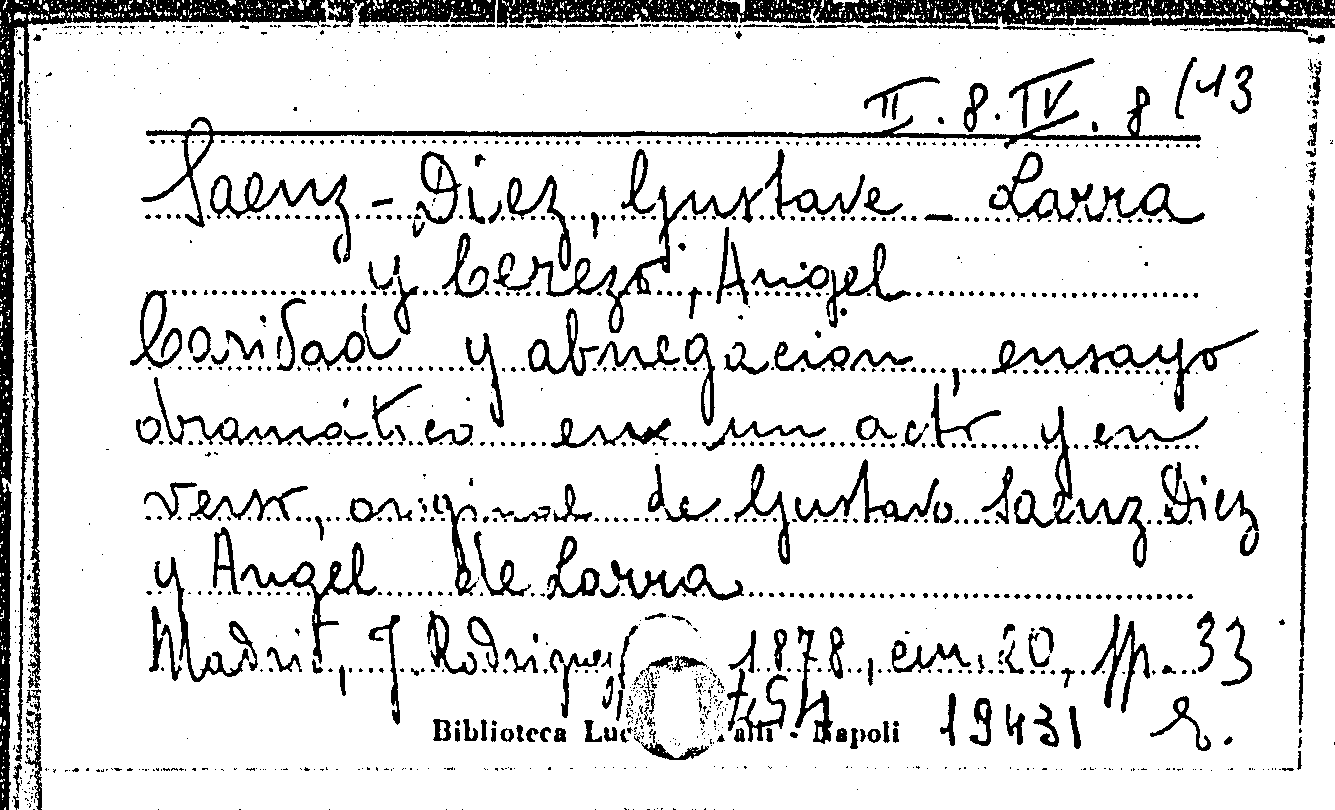 II.8.IV.8(13
Saenz-Diez, Gustave - Larra
y Cerezo, Angel
Caridad y abnegacion, ensayo
dramático en un acto y en
verso, original de Gustavo Saenz Diez
y Angel de Larra
Madrid, J. Rodriguez, 1878, cm. 20, pp. 33
Biblioteca - Napoli 19431